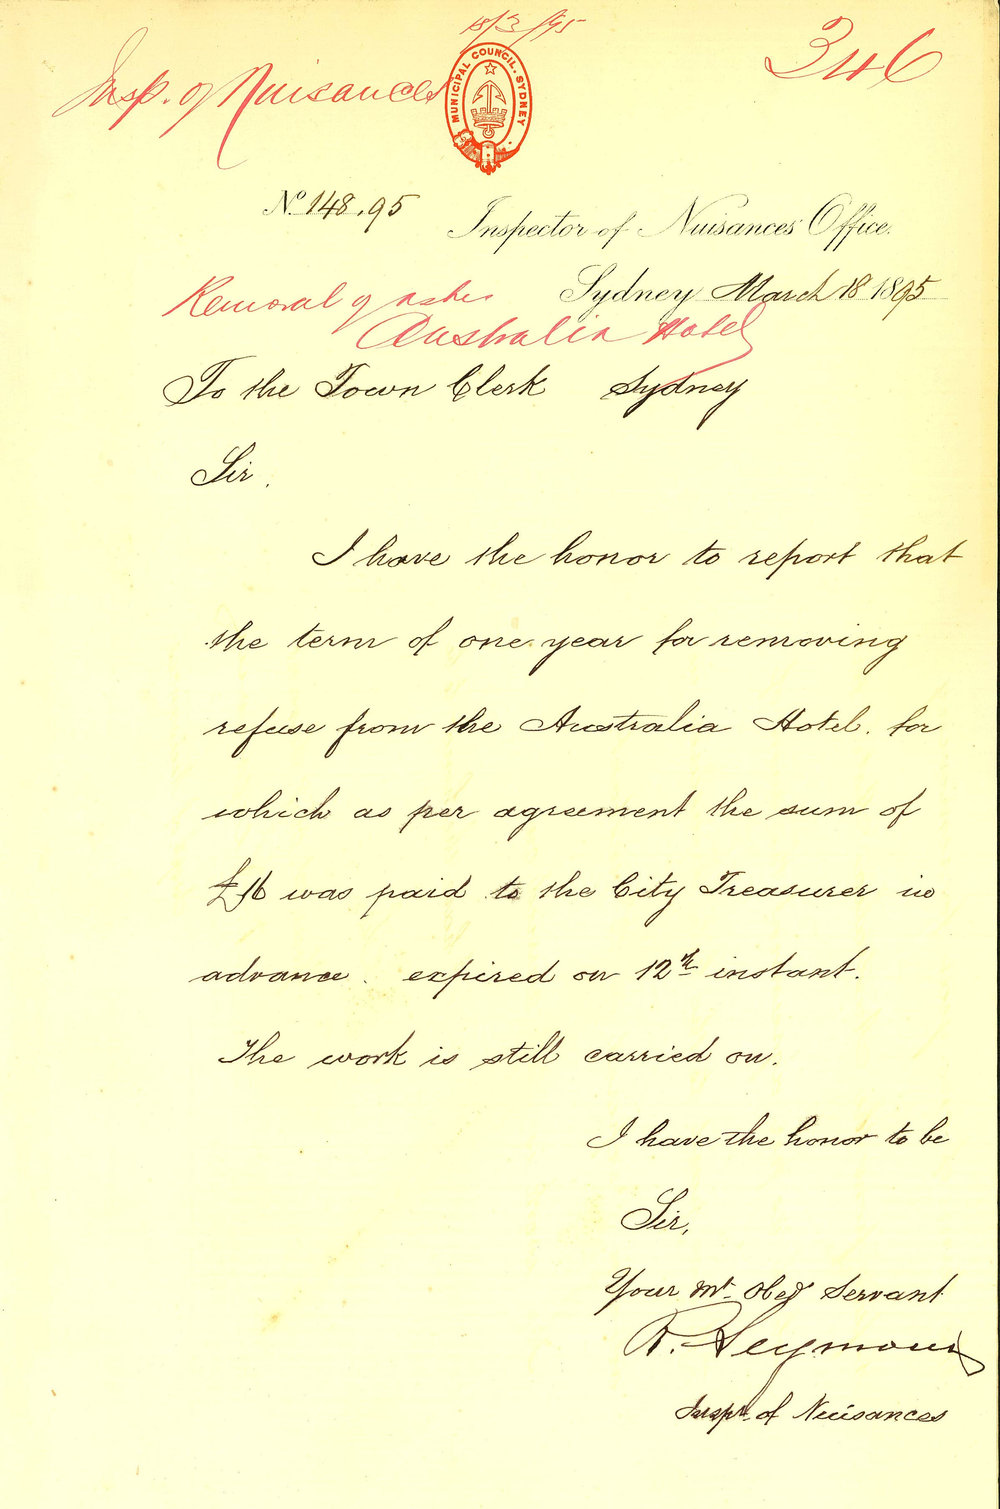 18/3/95
346
Insp. of Nuisances
MUNICIPAL COUNCIL. SYDNEY
No. 148.95
Inspector of Nuisances' Office.
Sydney March 18 1895
Removal of ashes
Australia Hotel
To the Town Clerk Sydney
Sir.
I have the honor to report that
the term of one year for removing
refuse from the Australia Hotel. for
which as per agreement the sum of
£16 was paid to the City Treasurer in
advance. expired on 12th instant.
The work is still carried on.
I have the honor to be
Sir,
Your Mt. Obed Servant
R. Seymour
Inspr. of Nuisances